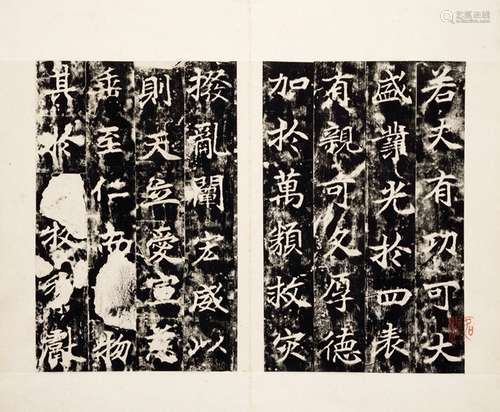 若夫有功可大
盛業光於四表
有親可久厚德
加於萬類救灾
撥亂闡宏威以
則天立愛宣慈
垂至仁物
其於